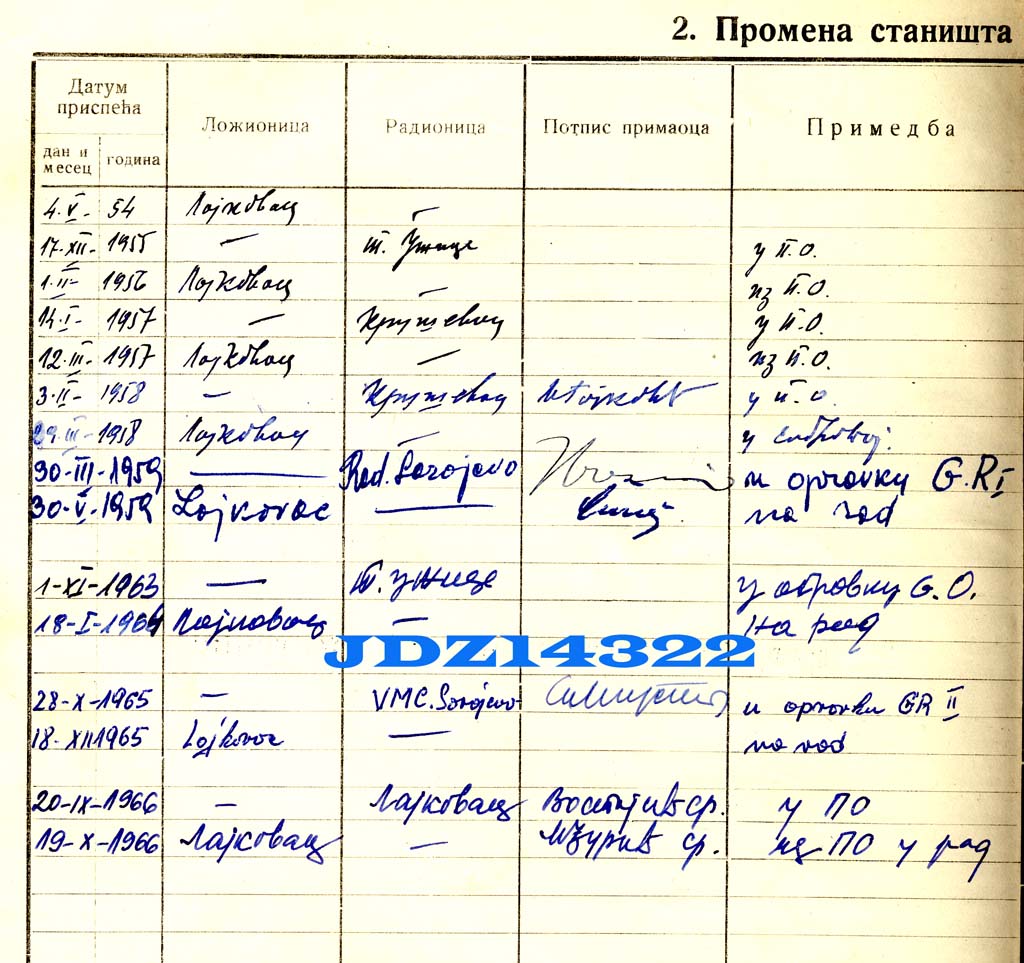 2. Промена станишта
Датум приспећа
Ложионица
Радионица
Потпис примаоца
Примедба
дан и месец
година
4.V- 54 Лајковац —
17.XII- 1955 — т. Ужице у П.О.
1.II- 1956 Лајковац — из П.О.
14.I- 1957 — Крушевац у П.О.
12.III- 1957 Лајковац — из П.О.
3.II- 1958 — Крушевац у П.О.
29.III- 1958 Лајковац — у
30-III-1959 — Rad. Sarajevo u opravku G.R I
30-V-1959 Lajkovac — na rad
1-XI-1963 — Т. Ужице у оправку G.O.
18-I-1964 Лајковац — На рад
JDZ14322
28-X-1965 — VMC. Sarajevo u opravku GR II
18-XII 1965 Lajkovac — na rad
20-IX-1966 — Лајковац ср. у ПО
19-X-1966 Лајковац — ср. из ПО у рад